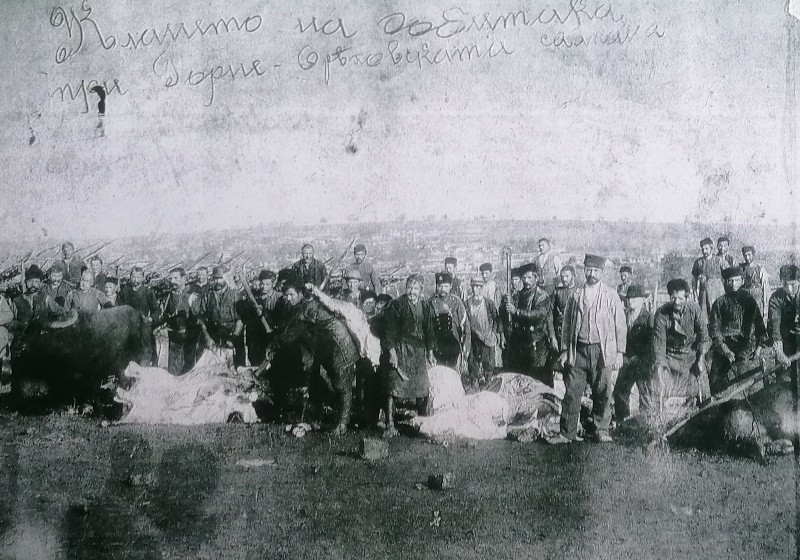 Клането на добитака
при Горне-Орѣховската салхана